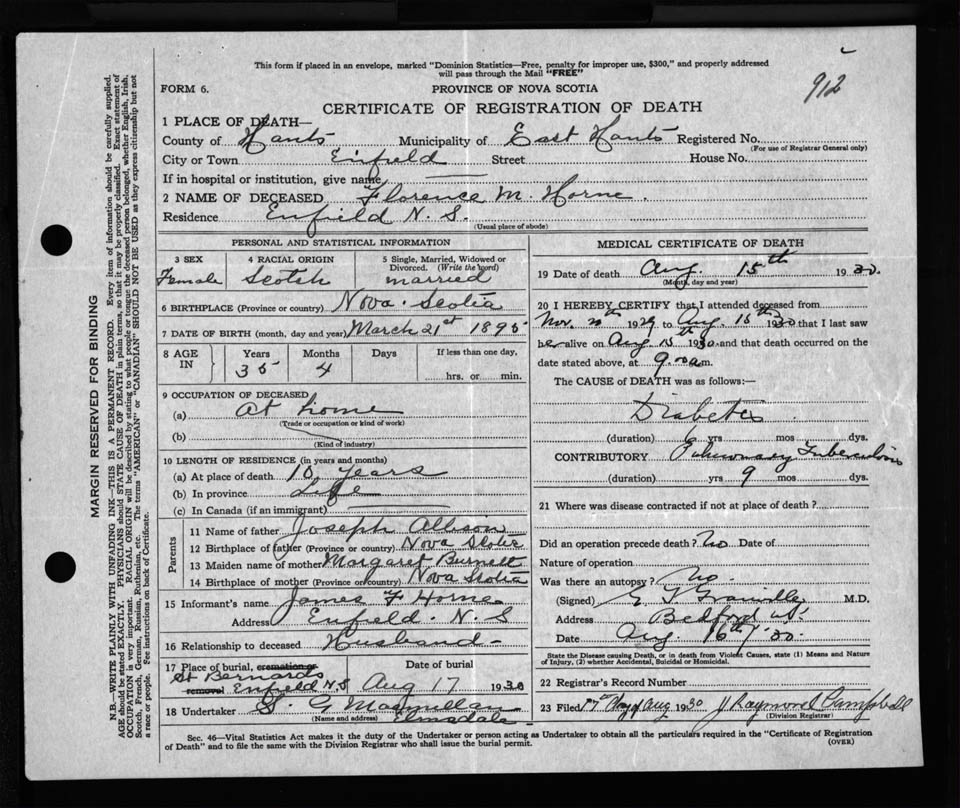 This form if placed in an envelope, marked "Dominion Statistics—Free, penalty for improper use, $300," and properly addressed
will pass through the Mail "FREE"
912
FORM 6.
PROVINCE OF NOVA SCOTIA
CERTIFICATE OF REGISTRATION OF DEATH
1 PLACE OF DEATH—
County of Hants Municipality of East Hants Registered No.
(For use of Registrar General only)
City or Town Enfield Street House No.
If in hospital or institution, give name
2 NAME OF DECEASED Florence M. Horne.
Residence Enfield N. S.
(Usual place of abode)
PERSONAL AND STATISTICAL INFORMATION
3 SEX Female
4 RACIAL ORIGIN Scotch
5 Single, Married, Widowed or Divorced. (Write the word) married
6 BIRTHPLACE (Province or country) Nova Scotia
7 DATE OF BIRTH (month, day and year) March 21st 1895
8 AGE IN Years 35 Months 4 Days If less than one day, hrs. or min.
9 OCCUPATION OF DECEASED
(a) At home
(Trade or occupation or kind of work)
(b)
(Kind of industry)
10 LENGTH OF RESIDENCE (in years and months)
(a) At place of death 10 years
(b) In province Life
(c) In Canada (if an immigrant)
Parents
11 Name of father Joseph Allison
12 Birthplace of father (Province or country) Nova Scotia
13 Maiden name of mother Margaret Burnett
14 Birthplace of mother (Province or country) Nova Scotia
15 Informant's name James F Horne
Address Enfield. N. S
16 Relationship to deceased Husband
17 Place of burial, cremation or removal St Bernards Enfield N.S
Date of burial Aug 17 1930
18 Undertaker S. G Macmillan
(Name and address) Elmsdale
MEDICAL CERTIFICATE OF DEATH
19 Date of death Aug. 15th 1930.
(Month, day and year)
20 I HEREBY CERTIFY that I attended deceased from
Nov. 1929 to Aug. 15th 1930 that I last saw
her alive on Aug 15th 1930 and that death occurred on the
date stated above, at 9.00 a m.
The CAUSE of DEATH was as follows:—
Diabetes
(duration) 6 yrs mos dys.
CONTRIBUTORY Pulmonary Tuberculosis
(duration) yrs 9 mos. dys.
21 Where was disease contracted if not at place of death?
Did an operation precede death? No Date of
Nature of operation
Was there an autopsy? No.
(Signed) Granville M.D.
Address Bedford
Date Aug. 16th/30.
State the Disease causing Death, or in death from Violent Causes, state (1) Means and Nature of Injury, (2) whether Accidental, Suicidal or Homicidal.
22 Registrar's Record Number
23 Filed Aug 1930 J Raymond Campbell
(Division Registrar)
Sec. 46—Vital Statistics Act makes it the duty of the Undertaker or person acting as Undertaker to obtain all the particulars required in the "Certificate of Registration
of Death" and to file the same with the Division Registrar who shall issue the burial permit.
(OVER)
MARGIN RESERVED FOR BINDING
N.B.—WRITE PLAINLY WITH UNFADING INK—THIS IS A PERMANENT RECORD. Every item of information should be carefully supplied.
AGE should be stated EXACTLY. PHYSICIANS should STATE CAUSE OF DEATH in plain terms, so that it may be properly classified. Exact statement of
OCCUPATION is very important. RACIAL ORIGIN will be described by stating to what people or tongue the deceased person belonged, whether English, Irish,
Scotch, French, German, Russian, Ruthenian, etc. The terms "AMERICAN" or "CANADIAN" SHOULD NOT BE USED as they express citizenship but not
a race or people. Fee instructions on back of Certificate.